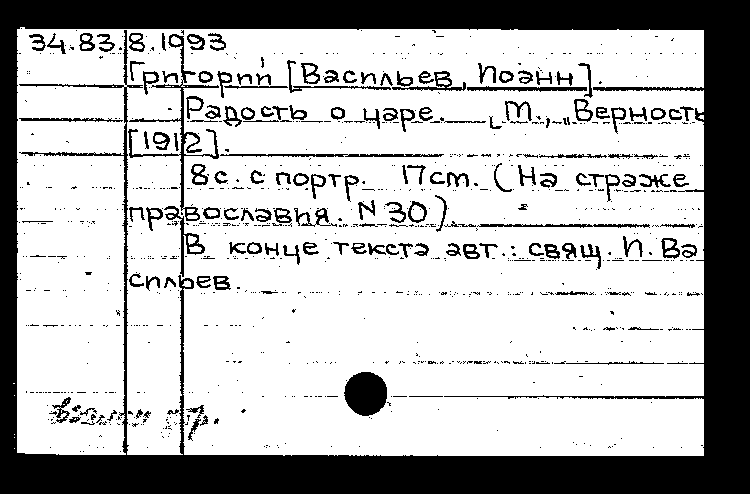 34.83.8.1093
Григорий [Васильев, Иоанн].
Радость о царе. М., „Верность
[1912].
8с. с портр. 17см. (На страже
православия. N 30).
В конце текста авт.: свящ. И. Ва-
сильев.